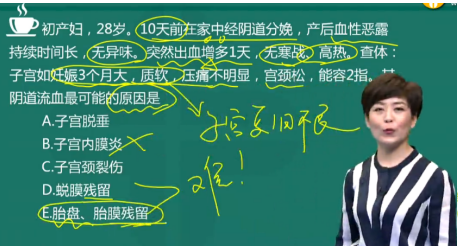 初产妇，28岁。10天前在家中经阴道分娩，产后血性恶露
持续时间长，无异味。突然出血增多1天，无寒战、高热。查体：
子宫如妊娠3个月大，质软，压痛不明显，宫颈松，能容2指。其
阴道流血最可能的原因是
子宫复旧不良
A.子宫脱垂
B.子宫内膜炎
C.子宫颈裂伤
D.蜕膜残留
E.胎盘、胎膜残留